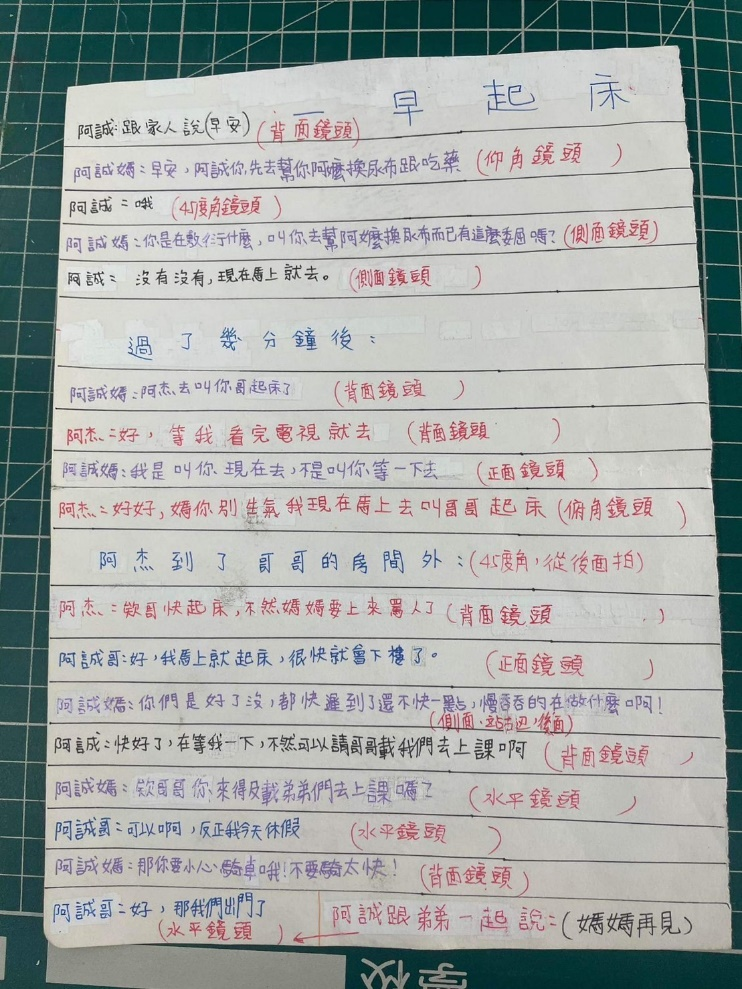 一早起床
阿誠:跟家人說(早安)(背面鏡頭)
阿誠媽:早安,阿誠你先去幫你阿嬤換尿布跟吃藥(仰角鏡頭)
阿誠:哦(45度角鏡頭)
阿誠媽:你是在敷衍什麼,叫你去幫阿嬤換尿布而已有這麼委屈嗎?(側面鏡頭)
阿誠:沒有沒有,現在馬上就去。(側面鏡頭)
過了幾分鐘後:
阿誠媽:阿杰去叫你哥起床了(背面鏡頭)
阿杰:好,等我看完電視就去(背面鏡頭)
阿誠媽:我是叫你現在去,不是叫你等一下去(正面鏡頭)
阿杰:好好,媽你別生氣我現在馬上去叫哥哥起床(俯角鏡頭)
阿杰到了哥哥的房間外:(45度角,從後面拍)
阿杰:欸哥快起床,不然媽媽要上來罵人了(背面鏡頭)
阿誠哥:好,我馬上就起床,很快就會下樓了。(正面鏡頭)
阿誠媽:你們是好了沒,都快遲到了還不快一點,慢吞吞的在做什麼啊!
(側面,站右邊,後面)
阿誠:快好了,在等我一下,不然可以請哥哥載我們去上課啊(背面鏡頭)
阿誠媽:欸哥哥你來得及載弟弟們去上課嗎?(水平鏡頭)
阿誠哥:可以啊,反正我今天休假(水平鏡頭)
阿誠媽:那你要小心騎車哦!不要騎太快!(背面鏡頭)
阿誠哥:好,那我們出門了
(水平鏡頭)
阿誠跟弟弟一起說:(媽媽再見)
學校